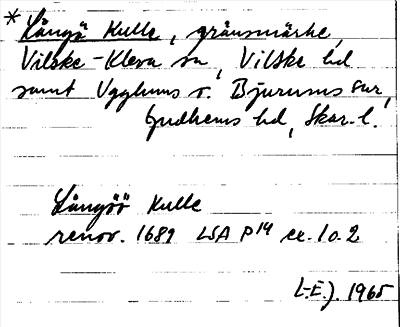 * Långö Kulle, gränsmärke,
Vilske-Kleva sn, Vilske hd
samt Ugglums o. Bjurums snr,
Gudhems hd, Skar. l.
Långöö Kulle
renov. 1689 LSA P14 ex. 1 o. 2
L.E.J. 1965